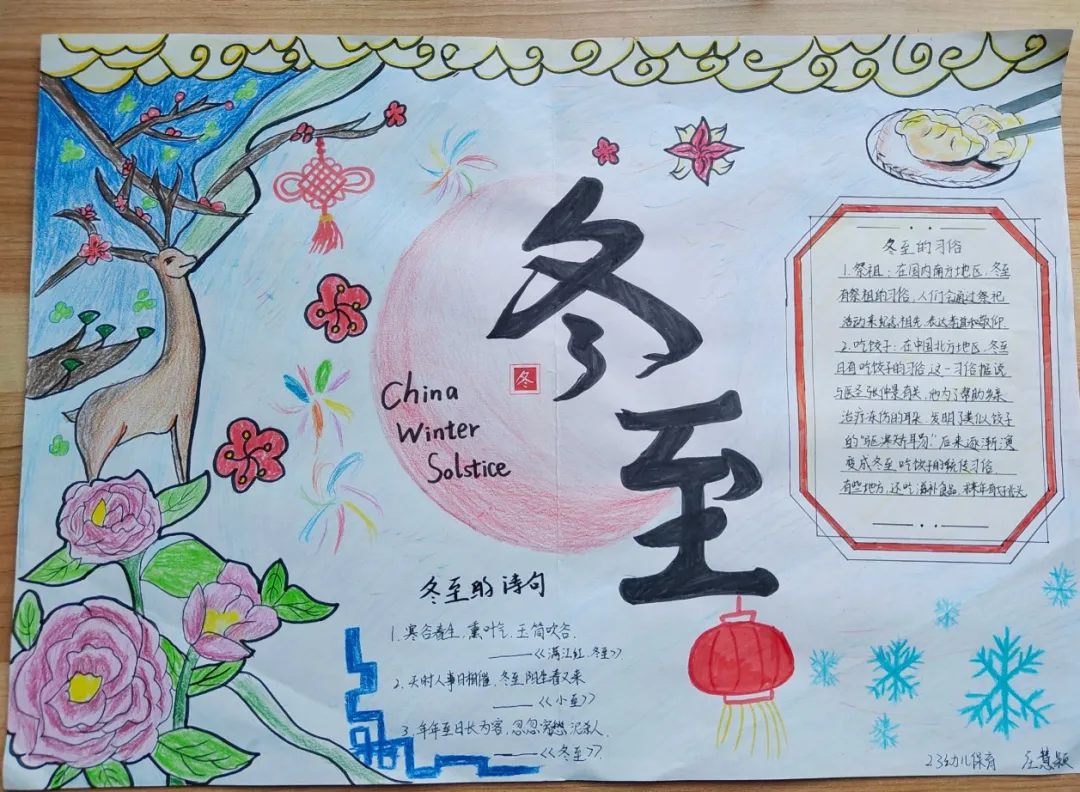 冬至
冬
China
Winter
Solstice
冬至的习俗
1.祭祖：在国内南方地区，冬至
有祭祖的习俗，人们会通过祭祀
活动来纪念祖先，表达孝道和敬仰.
2.吃饺子：在中国北方地区，冬至
日有吃饺子的习俗，这一习俗据说
与医圣张仲景有关，他为了帮助
治疗冻伤的耳朵，发明了类似饺子
的"驱寒矫耳汤"后来逐渐演
变成冬至吃饺子的传统习俗.
有些地方，还吃滋补食品，来年有好兆头
冬至的诗句
1.寒谷春生，熏叶气，玉筒吹谷.
——《满江红.冬至》.
2.天时人事日相催，冬至阳生春又来
——《小至》
3.年年至日长为客，忽忽穷愁泥杀人.
——《冬至》.
23幼儿保育 庄慧颖